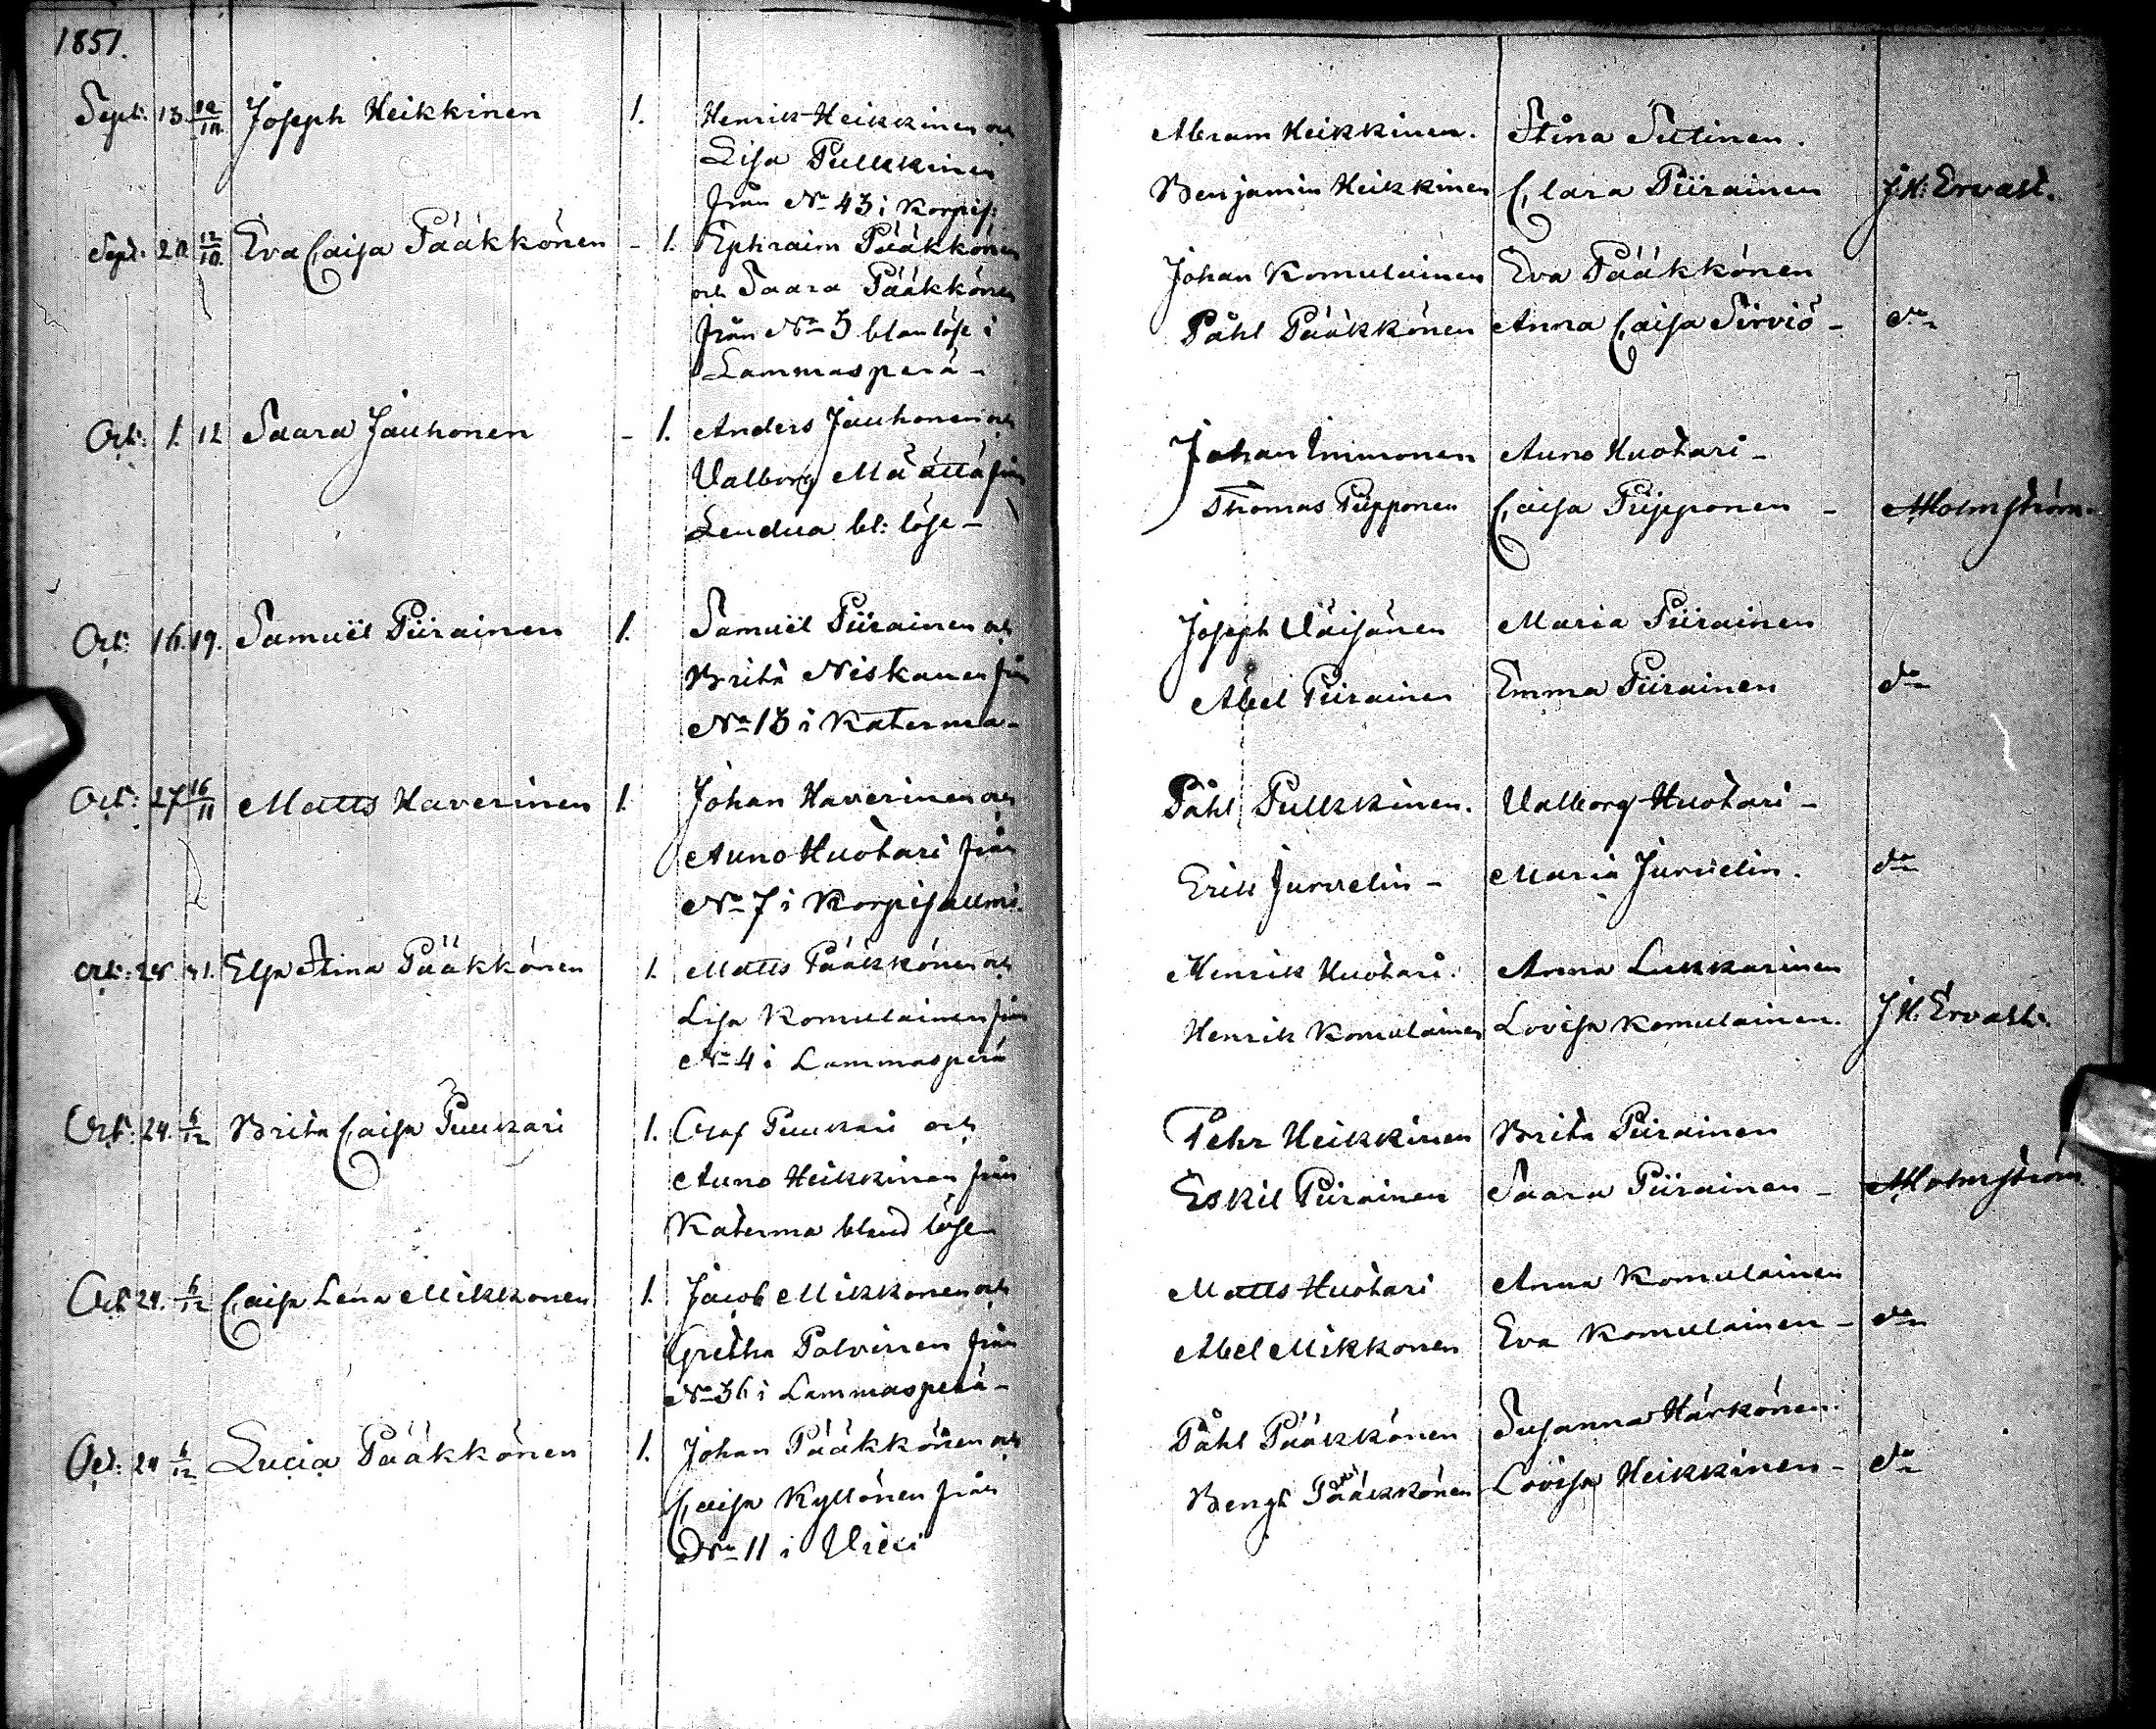 1851.
Sept: 13. 12/10. Joseph Heikkinen 1. Henrik Heikkinen och
Lisa Pulkkinen
från No 43 i Korpis:
Abram Heikkinen. Stina Sutinen.
Benjamin Heikkinen Clara Piirainen J H: Ervast.
Sept: 20. 12/10. Eva Caisa Pääkkönen - 1. Ephraim Pääkkönen
och Saara Pääkkönen
från No 5 bland löse i
Lammasperä -
Johan Komulainen Eva Pääkkönen
Påhl Pääkkönen Anna Caisa Sirviö - do
Oct: 1. 12 Saara Jauhonen - 1. Anders Jauhonen och
Valborg Määttä från
Lendua bl: löse -
Johan Immonen Auno Huotari -
Thomas Piipponen Caisa Piipponen - Holmström.
Oct: 16. 19. Samuël Piirainen 1. Samuël Piirainen och
Brita Niskanen från
No 13 i Katerma -
Joseph Väisänen Maria Piirainen
Abel Piirainen Emma Piirainen do
Oct: 27 16/11 Matts Haverinen 1. Johan Haverinen och
Auno Huotari från
No 7 i Korpisalmi.
Påhl Pulkkinen. Valborg Huotari -
Erik Jurvelin - Maria Jurvelin. do
Oct: 28. 31. Elsa Stina Pääkkönen 1. Matts Pääkkönen och
Lisa Komulainen från
No 4 i Lammasperä
Henrik Huotari. Anna Lukkarinen
Henrik Komulainen Lovisa Komulainen. J H. Ervast.
Oct: 24. 6/12 Brita Caisa Puukari 1. Olof Puukari och
Auno Heikkinen från
Katerma bland löse
Pehr Heikkinen Brita Piirainen
Eskil Piirainen Saara Piirainen - Holmström.
Oct 24. 6/12 Caisa Lena Mikkonen 1. Jacob Mikkonen och
Gretha Polvinen från
No 36 i Lammasperä -
Matts Huotari Anna Komulainen
Abel Mikkonen Eva Komulainen - do
Oct: 24 6/12 Lucia Pääkkönen 1. Johan Pääkkönen och
Caisa Kyllönen från
No 11 i Vieki
Påhl Pääkkönen Susanna Härkönen.
Bengt Pääkkönen Lovisa Heikkinen - do